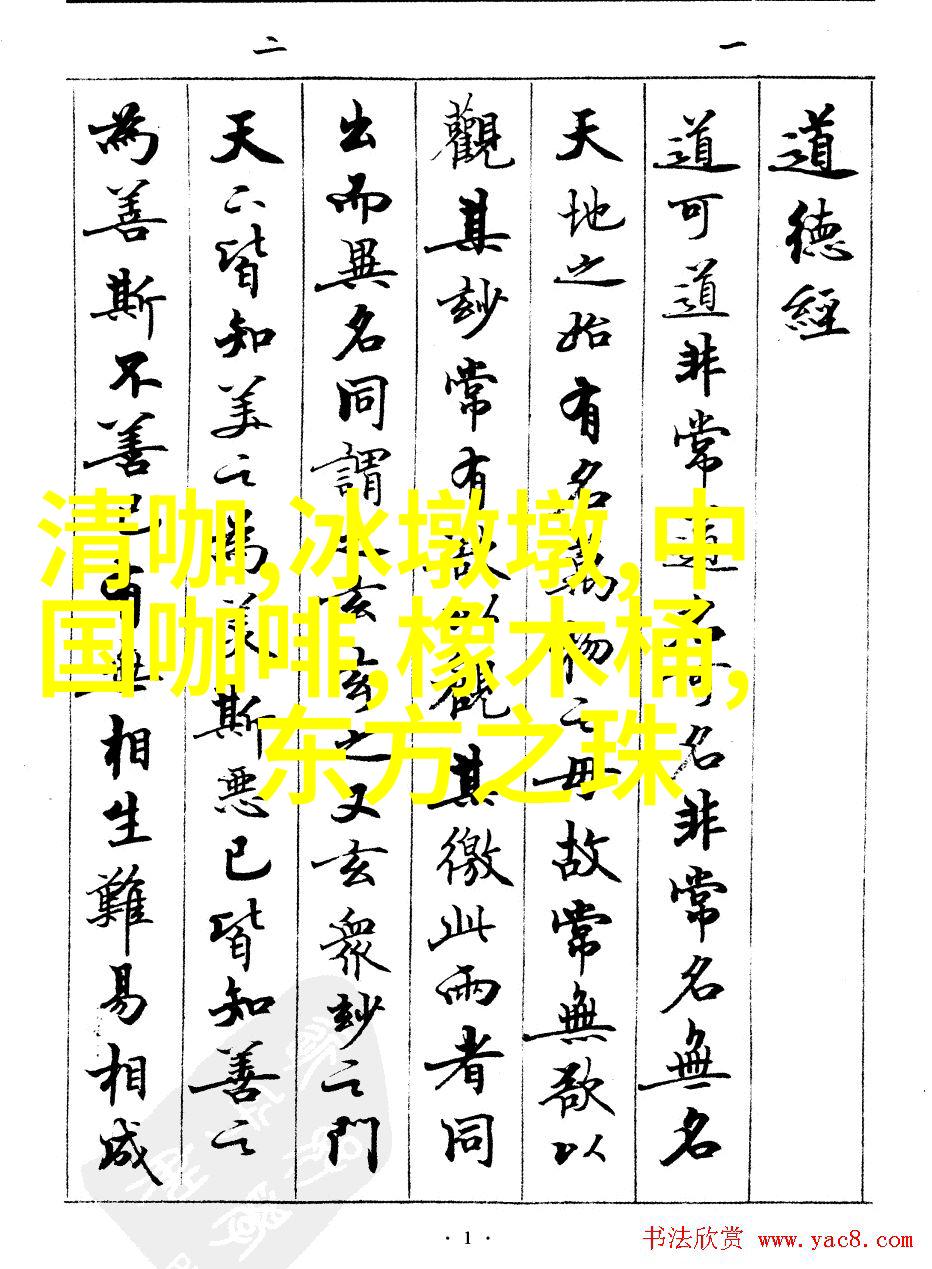 一
二
道德經
道可道非常道名可名非常名無名
天地之始有名萬物之母故常無欲以
觀其玅常有欲以觀其徼此兩者同
出而異名同謂之玄玄之又玄衆玅之門
天下皆知美之為美斯惡已皆知善之
為善斯不善已有無相生難易相成
清咖,冰墩墩,中
国咖啡,橡木桶,
东方之珠
· 1 ·
书法欣赏 www.yac8.com